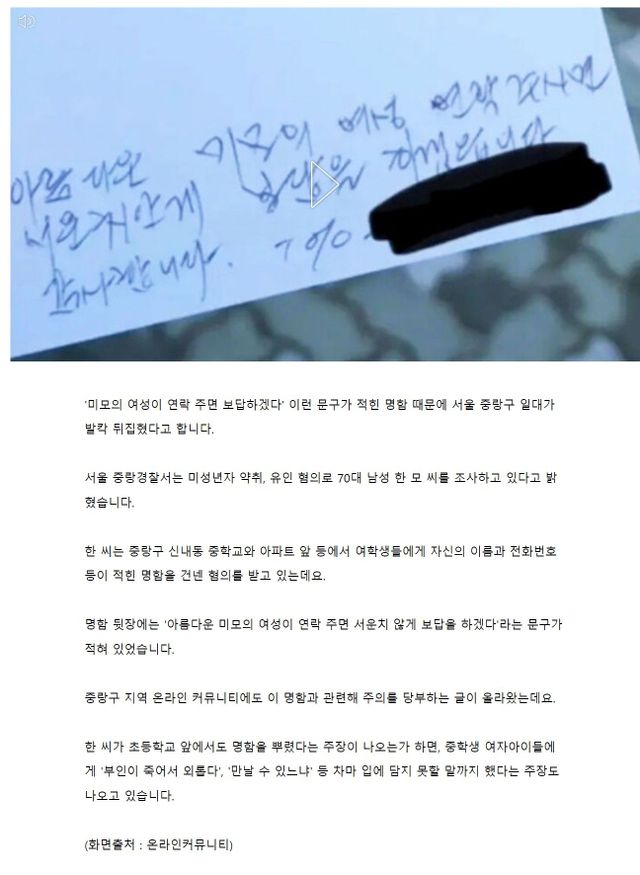 아름다운 미모의 여성 연락 주시면
서운치안게
감사합니다.
'미모의 여성이 연락 주면 보답하겠다' 이런 문구가 적힌 명함 때문에 서울 중랑구 일대가
발칵 뒤집혔다고 합니다.
서울 중랑경찰서는 미성년자 약취, 유인 혐의로 70대 남성 한 모 씨를 조사하고 있다고 밝
혔습니다.
한 씨는 중랑구 신내동 중학교와 아파트 앞 등에서 여학생들에게 자신의 이름과 전화번호
등이 적힌 명함을 건넨 혐의를 받고 있는데요.
명함 뒷장에는 '아름다운 미모의 여성이 연락 주면 서운치 않게 보답을 하겠다'라는 문구가
적혀 있었습니다.
중랑구 지역 온라인 커뮤니티에도 이 명함과 관련해 주의를 당부하는 글이 올라왔는데요.
한 씨가 초등학교 앞에서도 명함을 뿌렸다는 주장이 나오는가 하면, 중학생 여자아이들에
게 '부인이 죽어서 외롭다', '만날 수 있느냐' 등 차마 입에 담지 못할 말까지 했다는 주장도
나오고 있습니다.
(화면출처 : 온라인커뮤니티)